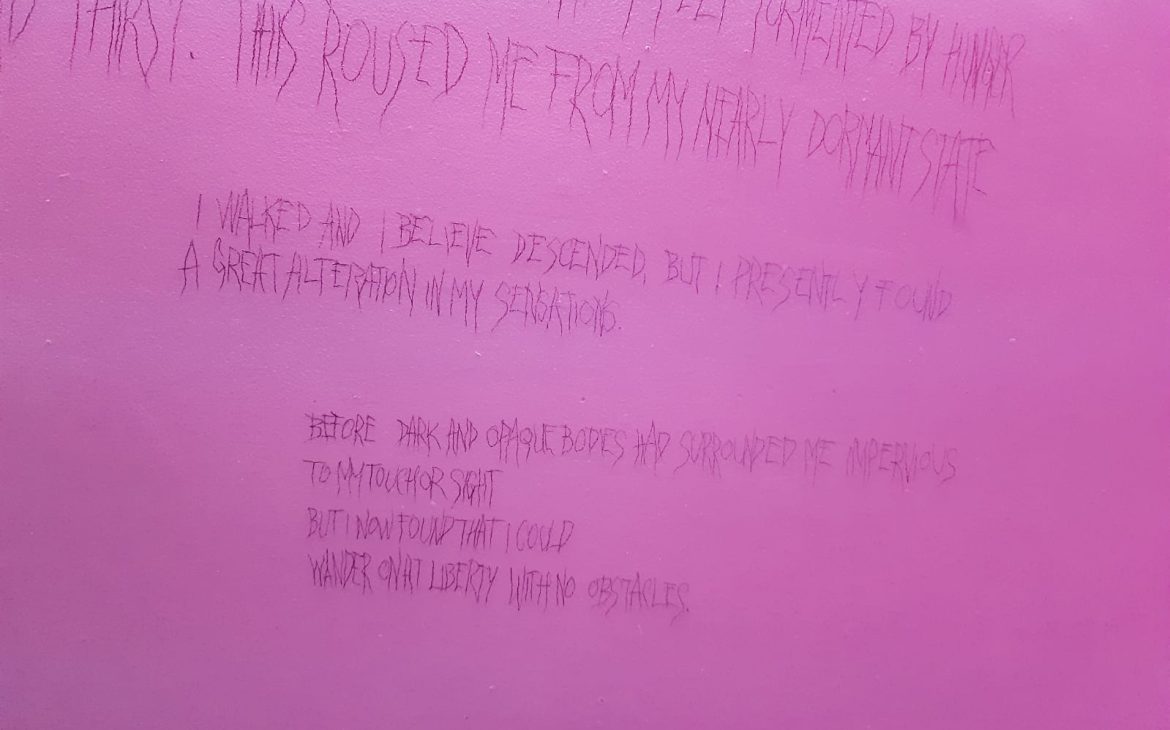 FELT TORMENTED BY HUNGER
D THIRST. THIS ROUSED ME FROM MY NEARLY DORMANT STATE
I WALKED AND I BELIEVE DESCENDED, BUT I PRESENTLY FOUND
A GREAT ALTERATION IN MY SENSATIONS.
BEFORE DARK AND OPAQUE BODIES HAD SURROUNDED ME IMPERVIOUS
TO MY TOUCH OR SIGHT
BUT I NOW FOUND THAT I COULD
WANDER ON AT LIBERTY WITH NO OBSTACLES.